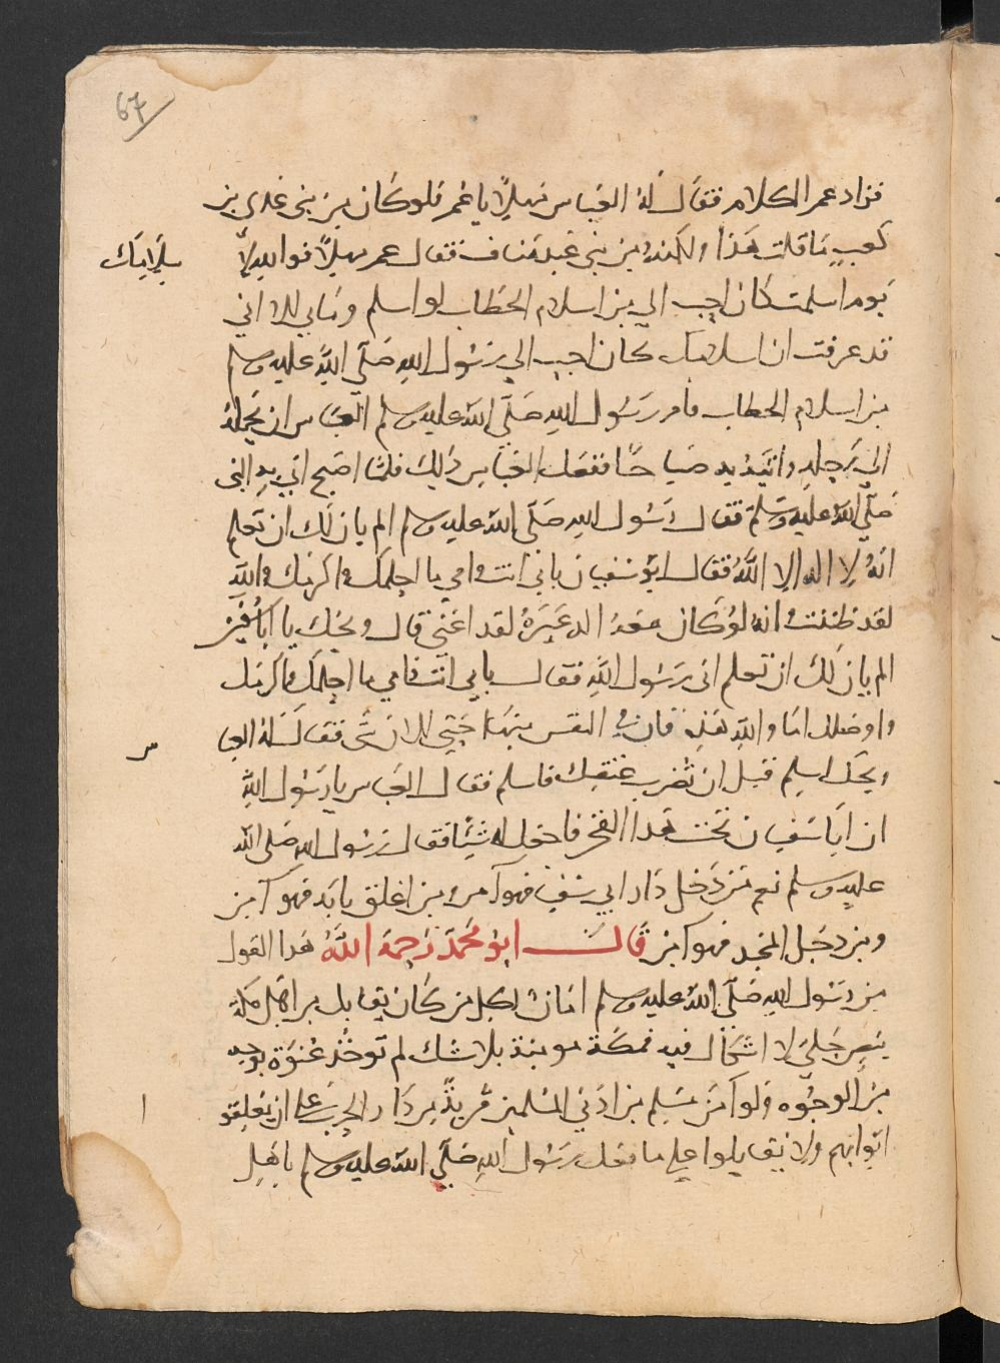 67
فزاد عمر الكلام فقال له العباس مهلا يا عمر فلو كان من بني عدي بن
كعب ما قلت هذا ولكنه من بني عبد مناف فقال عمر مهلا فوالله لا
سلامك
يوم اسلمت كان احب الي من اسلام الخطاب لو اسلم وما بي الا اني
قد عرفت ان اسلامك كان احب الي رسول الله صلى الله عليه وسلم
من اسلام الخطاب فامر رسول الله صلى الله عليه وسلم العباس ان يحمله
الي رحله وياتيه به صباحا ففعل العباس ذلك فلما اصبح اتي به النبي
صلى الله عليه وسلم فقال رسول الله صلى الله عليه وسلم الم يان لك ان تعلم
انه لا اله الا الله فقال ابو سفيان بابي انت وامي ما احلمك واكرمك والله
لقد ظننت انه لو كان معه اله غيره لقد اغني قال ويحك يا ابا سفين
الم يان لك ان تعلم اني رسول الله فقال بابي انت وامي ما احلمك واكرمك
واوصلك اما والله هذه فان في النفس منها حتي الان شي فقال له العبا
س
ويحك اسلم قبل ان تضرب عنقك فاسلم فقال العباس يا رسول الله
ان ابا سفين تحت هذا الفخر فاجعل له شيئا فقال رسول الله صلى الله
عليه وسلم نعم من دخل دار ابي سفين فهو آمن ومن اغلق بابه فهو آمن
ومن دخل المسجد فهو آمن قال ابو محمد رحمه الله هذا القول
من رسول الله صلى الله عليه وسلم امان لكل من كان يقاتل من اهل مكة
بنص جلي لا اشكال فيه فمكة مومنة بلا شك لم توخذ عنوة بوجه
من الوجوه ولو آمن مسلم من ادني المسلمين قرية من دار الحرب علي ان يغلقو
ا
ابوابهم ولا يقاتلوا علي ما فعل رسول الله صلى الله عليه وسلم باهل